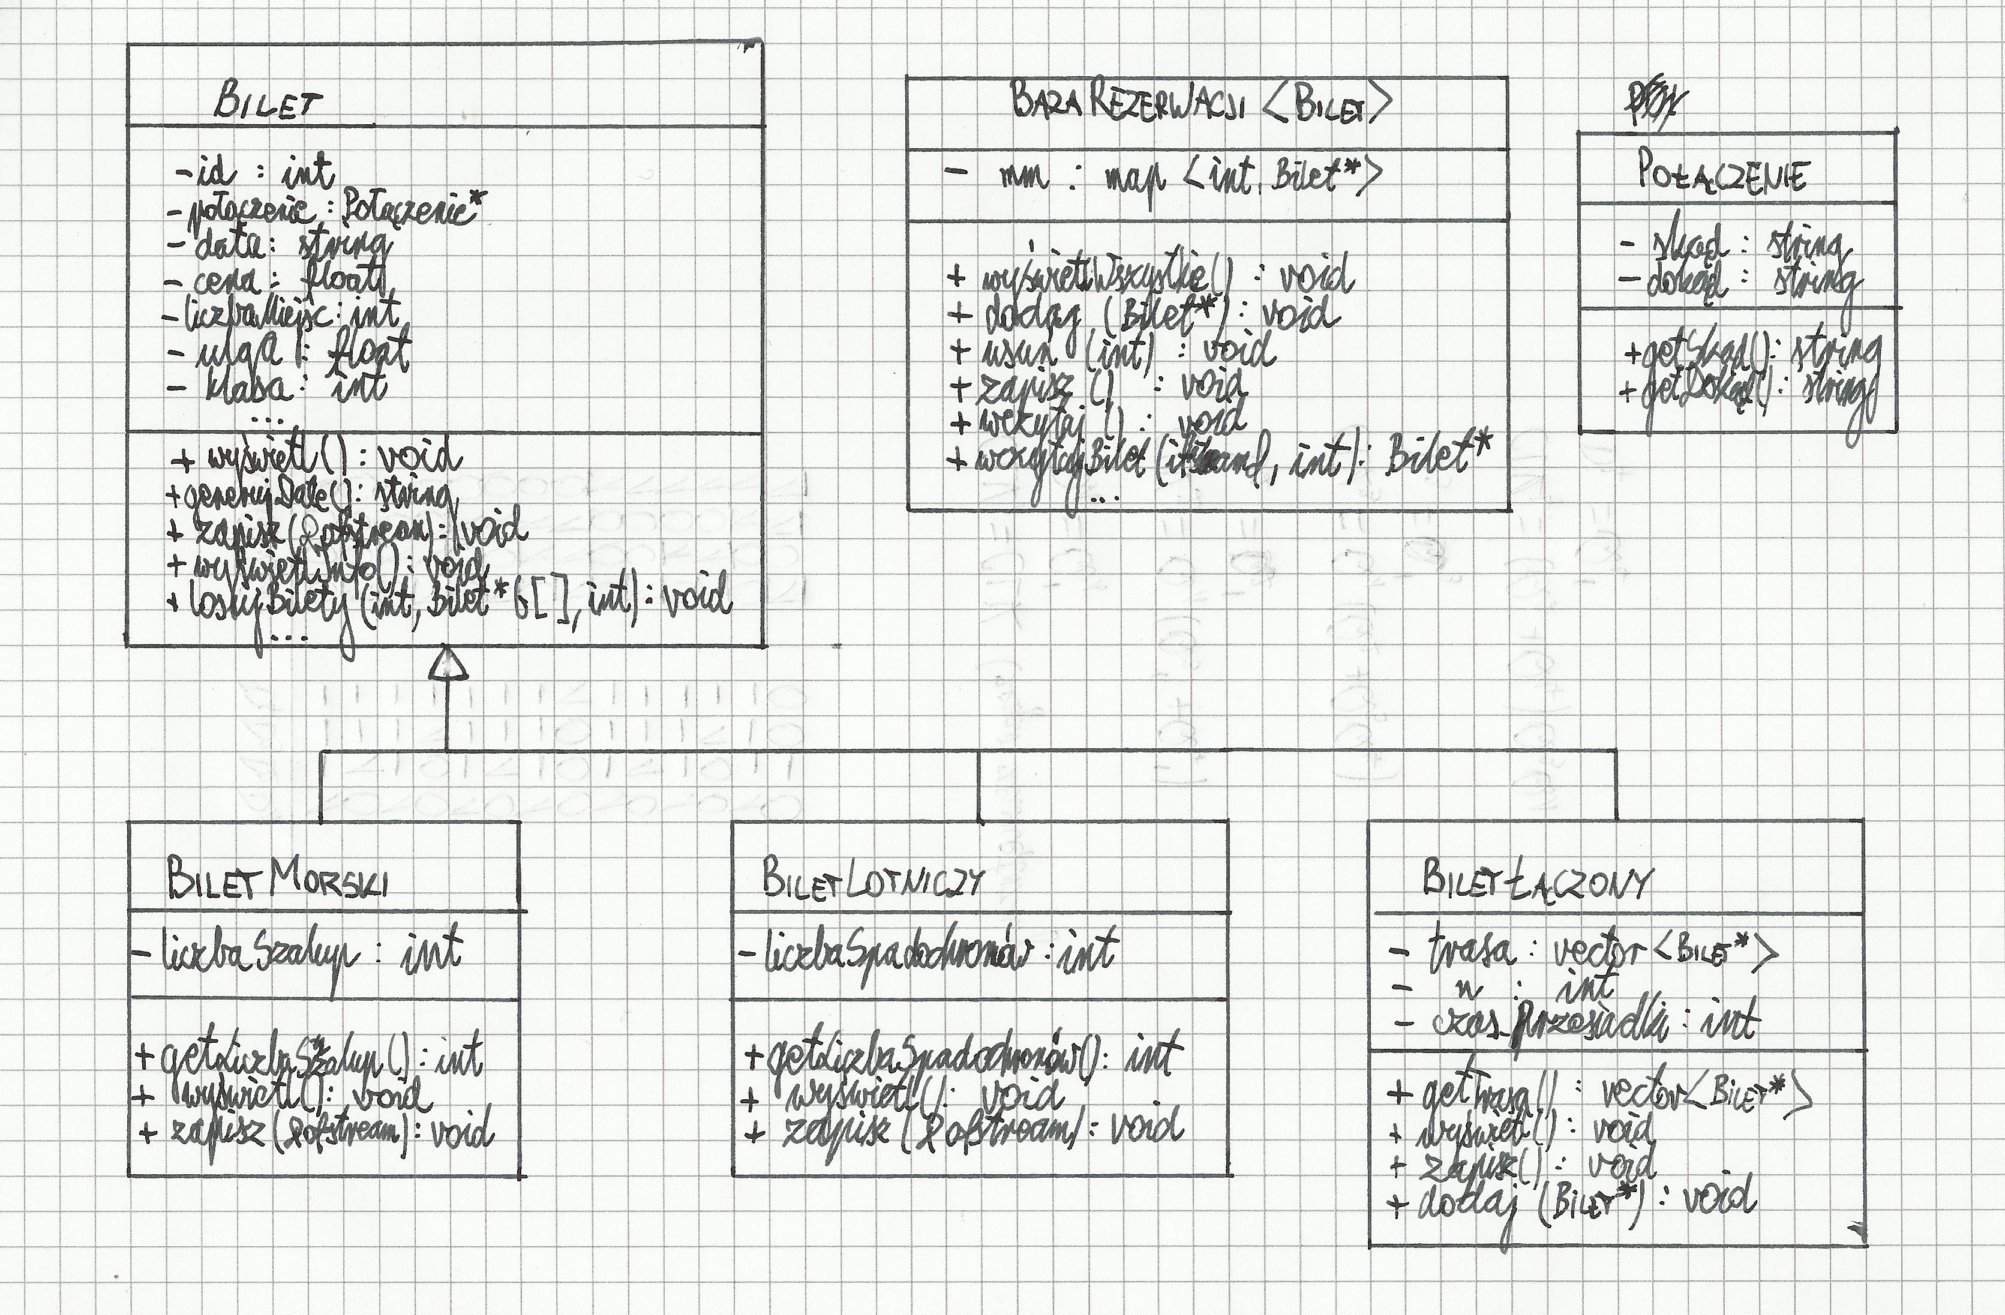 BILET
- id : int
- połączenie : Połączenie*
- data : string
- cena : float
- liczbaMiejsc : int
- ulga : float
- klasa : int
...
+ wyświetl() : void
+ generujDate() : string
+ zapisz(&ofstream) : void
+ wyświetlInfo() : void
+ losujBilety (int, Bilet* b[], int) : void
...
BAZA REZERWACJI <BILET>
- mm : map <int, Bilet*>
+ wyświetlWszystkie() : void
+ dodaj (Bilet*) : void
+ usuń (int) : void
+ zapisz () : void
+ wczytaj () : void
+ wczytajBilet ( , int) : Bilet*
...
POŁĄCZENIE
- skąd : string
- dokąd : string
+ getSkąd() : string
+ getDokąd() : string
BILETMORSKI
- liczbaSzalup : int
+ getLiczbaSzalup() : int
+ wyświetl() : void
+ zapisz (&ofstream) : void
BILETLOTNICZY
- liczbaSpadochronów : int
+ getLiczbaSpadochronów() : int
+ wyświetl() : void
+ zapisz (&ofstream) : void
BILETŁĄCZONY
- trasa : vector <BILET*>
- n : int
- czas_przesiadki : int
+ getTrasa() : vector<BILET*>
+ wyświetl() : void
+ zapisz() : void
+ dodaj (BILET*) : void